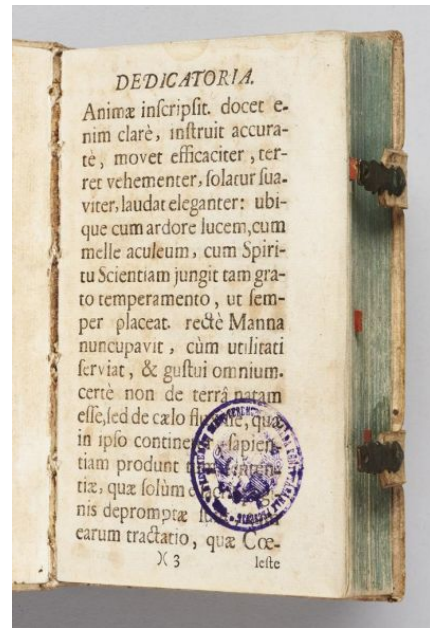 DEDICATORIA.
Animæ inſcripſit. docet e-
nim clarè, inſtruit accura-
tè, movet efficaciter, ter-
ret vehementer, ſolatur ſua-
viter, laudat eleganter: ubi-
que cum ardore lucem, cum
melle aculeum, cum Spiri-
tu Scientiam jungit tam gra-
to temperamento, ut ſem-
per placeat. rectè Manna
nuncupavit, cùm utilitati
ſerviat, & guſtui omnium.
certè non de terrâ natam
eſſe, ſed de cælo
in ipſo ſapien-
tiam produnt
tiæ, quæ ſolùm
nis depromptæ
earum tractatio, quæ Cœ-
)( 3 leſte